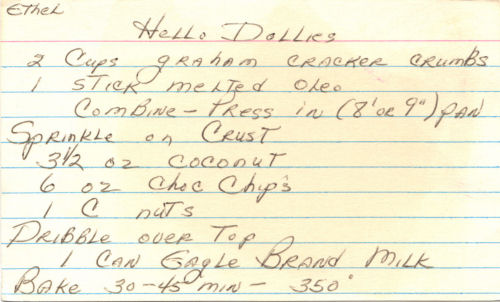 Ethel
Hello Dollies
2 Cups graham cracker crumbs
1 stick melted oleo
Combine - Press in (8" or 9") pan
Sprinkle on Crust
3 1/2 oz coconut
6 oz Choc Chips
1 C nuts
Dribble over Top
1 Can Eagle Brand Milk
Bake 30-45 min - 350°